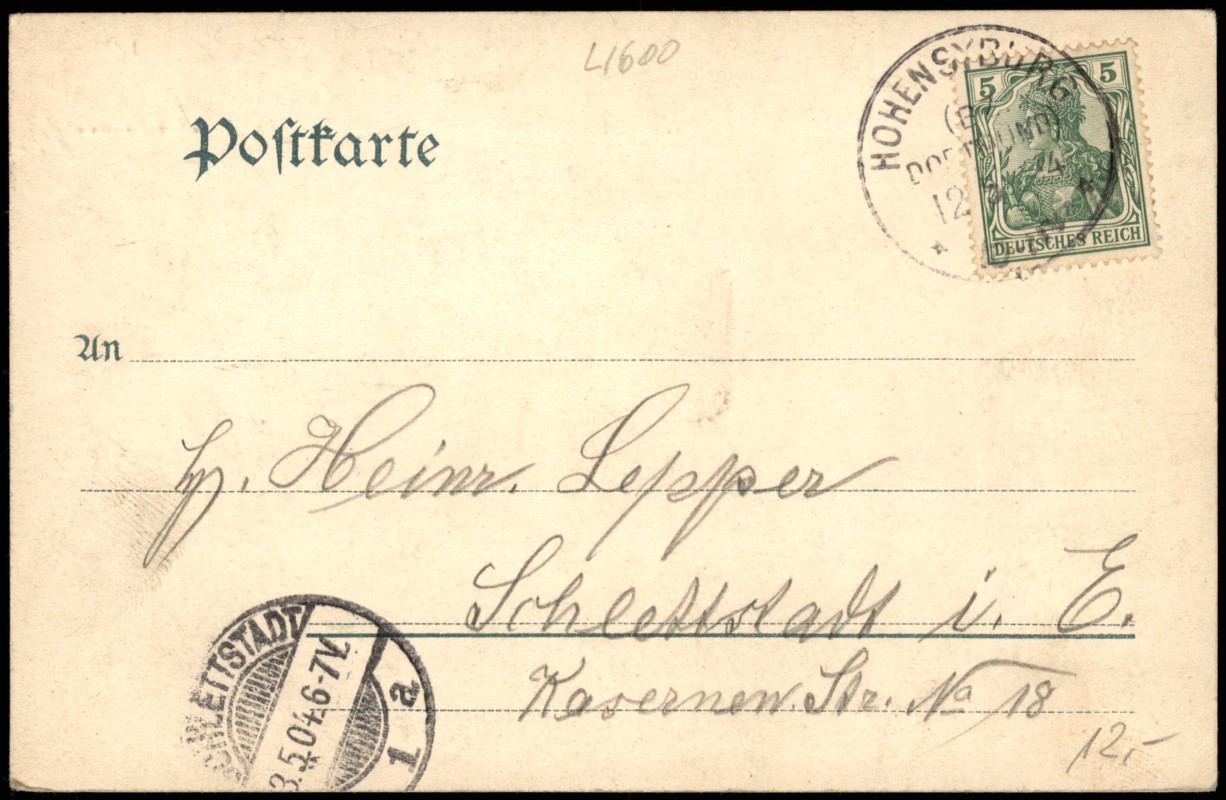 L1600
Postkarte
HOHENSYBURG
DORTMUND)
12
5 5
DEUTSCHES REICH
An
Heinr. Lepper
Schlettstadt i. E.
Kasernen. Str. No 18
SCHLETTSTADT
3.5.04. 6-7V.
1 a
12,-